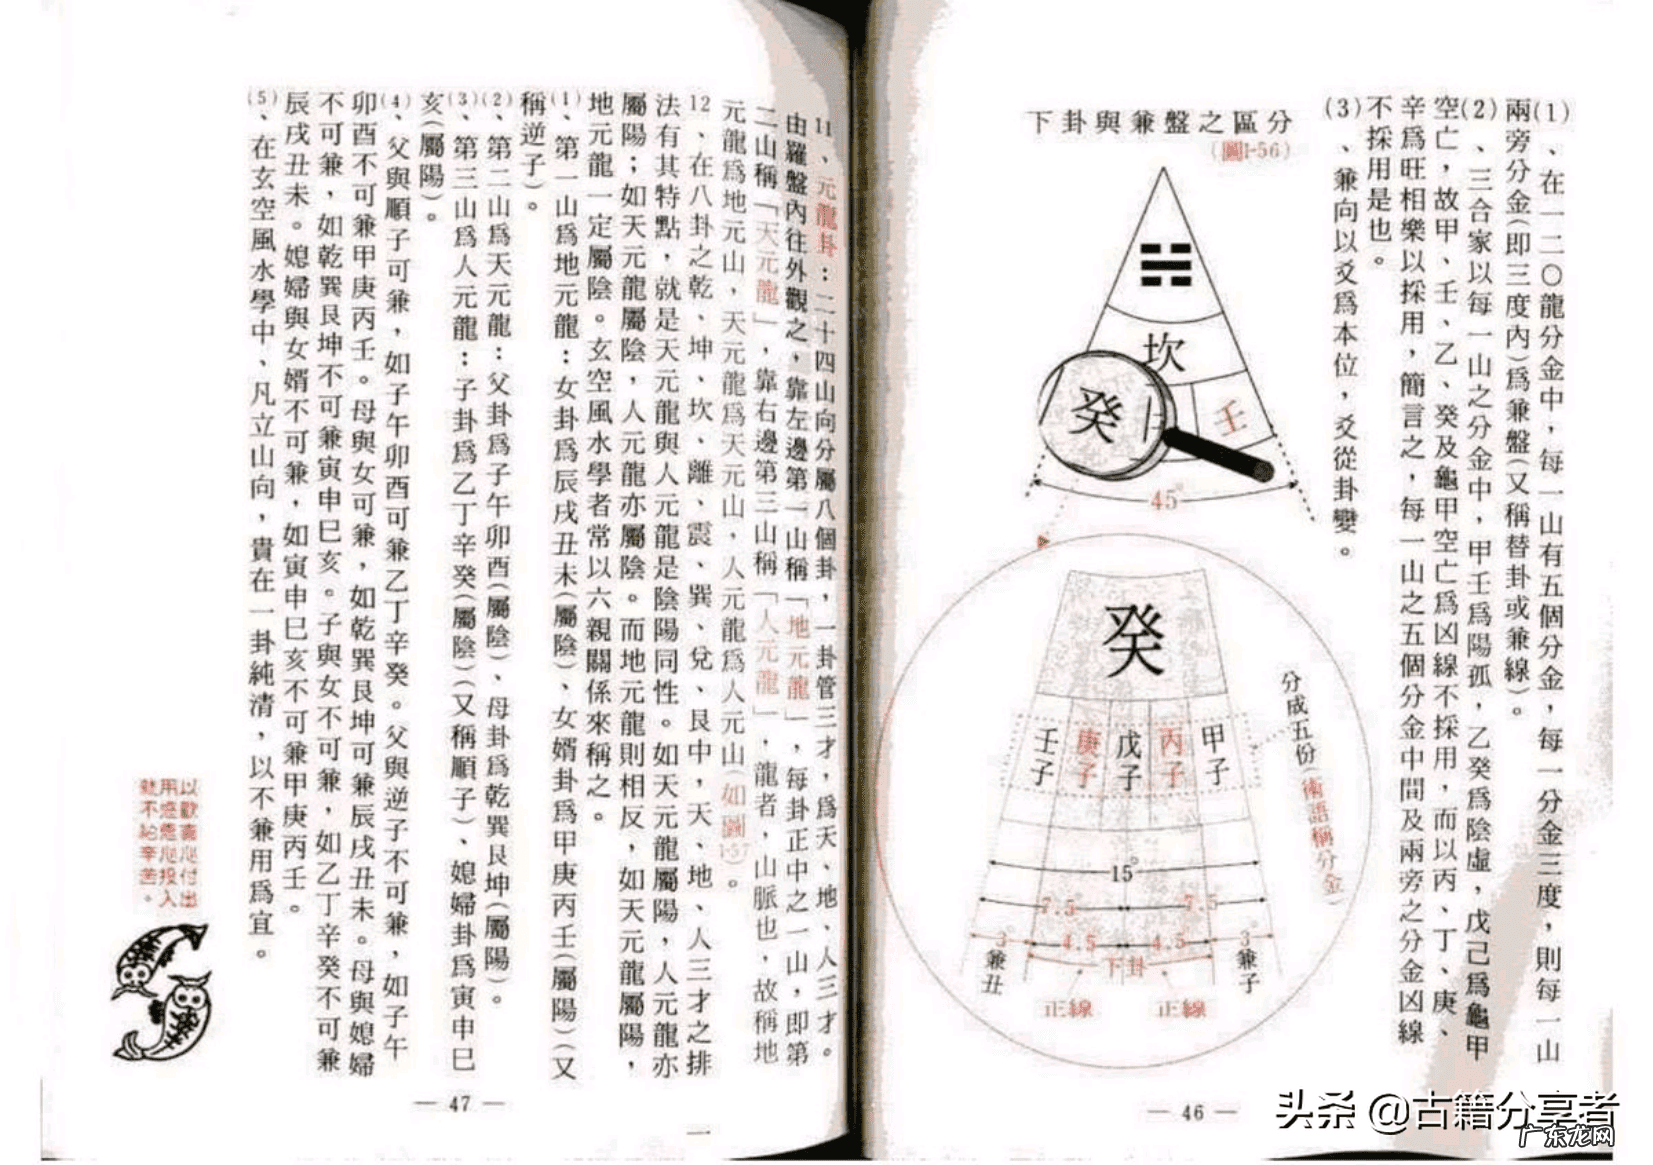 (1)、在一二〇龍分金中，每一山有五個分金，每一分金三度，則每一山
兩旁分金(即三度內)爲兼盤(又稱替卦或兼線)。
(2)、三合家以每一山之分金中，甲壬爲陽孤，乙癸爲陰虛，戊己爲龜甲
空亡，故甲、壬、乙、癸及龜甲空亡爲凶線不採用，而以丙、丁、庚、
辛爲旺相樂以採用，簡言之，每一山之五個分金中間及兩旁之分金凶線
不採用是也。
(3)、兼向以爻爲本位，爻從卦變。
下卦與兼盤之區分
(圖1-56)
坎
癸
壬
45°
癸
壬子
庚子
戊子
丙子
甲子
分成五份(術語稱分金)
15°
7.5°
7.5°
3°
4.5
4.5
3°
兼丑
下卦
兼子
正線
正線
— 46 —
11、元龍卦：二十四山向分屬八個卦，一卦管三才，爲天、地、人三才。
由羅盤內往外觀之，靠左邊第一山稱「地元龍」，每卦正中之一山，即第
二山稱「天元龍」，靠右邊第三山稱「人元龍」，龍者，山脈也，故稱地
元龍爲地元山，天元龍爲天元山，人元龍爲人元山(如圖1-57)。
12、在八卦之乾、坤、坎、離、震、巽、兌、艮中，天、地、人三才之排
法有其特點，就是天元龍與人元龍是陰陽同性。如天元龍屬陽，人元龍亦
屬陽；如天元龍屬陰，人元龍亦屬陰。而地元龍則相反，如天元龍屬陽，
地元龍一定屬陰。玄空風水學者常以六親關係來稱之。
(1)、第一山爲地元龍：女卦爲辰戌丑未(屬陰)、女婿卦爲甲庚丙壬(屬陽)(又
稱逆子)。
(2)、第二山爲天元龍：父卦爲子午卯酉(屬陰)、母卦爲乾巽艮坤(屬陽)。
(3)、第三山爲人元龍：子卦爲乙丁辛癸(屬陰)(又稱順子)、媳婦卦爲寅申巳
亥(屬陽)。
(4)、父與順子可兼，如子午卯酉可兼乙丁辛癸。父與逆子不可兼，如子午
卯酉不可兼甲庚丙壬。母與女可兼，如乾巽艮坤可兼辰戌丑未。母與媳婦
不可兼，如乾巽艮坤不可兼寅申巳亥。子與女不可兼，如乙丁辛癸不可兼
辰戌丑未。媳婦與女婿不可兼，如寅申巳亥不可兼甲庚丙壬。
(5)、在玄空風水學中、凡立山向，貴在一卦純清，以不兼用爲宜。
以歡喜心付出
用慈悲心投入
就不怕辛苦。
— 47 —
头条 @古籍分享者
广东龙网